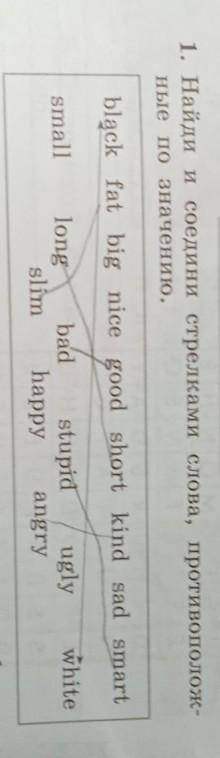 1. Найди и соедини стрелками слова, противополож-
ные по значению.
black fat big nice good short kind sad smart
small long bad stupid ugly white
slim happy angry